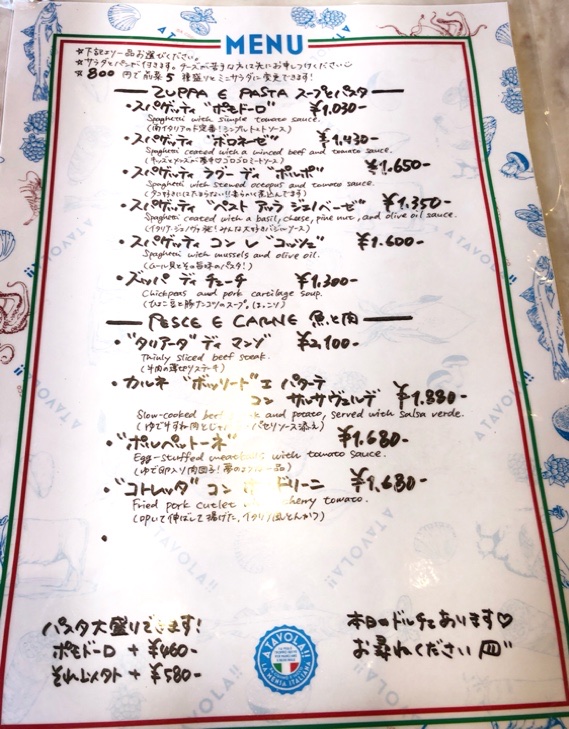 MENU
☆下記より一品お選びください。
☆サラダとパンが付きます。チーズが苦手な方は先にお申しつけください
☆800円で前菜5種盛りとミニサラダに変更できます!
ZUPPA E PASTA スープとパスタ
・スパゲッティ "ポモドーロ" ¥1,030-
Spaghetti with simple tomato sauce.
(南イタリアの定番!シンプルトマトソース)
・スパゲッティ "ボロネーゼ" ¥1,430-
Spaghetti coated with a minced beef and tomato sauce.
(キッズもメンズも夢中♡ゴロゴロミートソース)
・スパゲッティ ラグー ディ "ポルポ" ¥1,650-
Spaghetti with stewed octopus and tomato sauce.
(タコ好きにはたまらない!!柔らかく煮込んでます)
・スパゲッティ "ペスト アッラ ジェノベーゼ" ¥1,350-
Spaghetti coated with a basil, cheese, pine nut, and olive oil sauce.
(イタリア・ジェノヴァ発!みんな大好きバジルソース)
・スパゲッティ コン レ "コッツェ" ¥1,600-
Spaghetti with mussels and olive oil.
(ムール貝とその旨味のパスタ!)
・ズッパ ディ チェーチ ¥1,300-
Chickpeas and pork cartilage soup.
(ひよこ豆と豚ナンコツのスープ。ほっこり)
PESCE E CARNE 魚と肉
・"タリアータ" ディ マンゾ ¥2,100-
Thinly sliced beef steak.
(牛肉の薄切りステーキ)
・カルネ "ボッリート" エ パターテ
コン サルサヴェルデ ¥1,880-
Slow-cooked beef and potato, served with salsa verde.
(ゆで牛すね肉と パセリソース添え)
・"ポルペットーネ" ¥1,680-
Egg-stuffed meatball with tomato sauce.
(ゆで卵入り肉団子!夢の 一品)
・"コトレッタ" コン ドリーニ ¥1,680-
Fried pork cutlet cherry tomato.
(叩いて伸ばして揚げた、イタリア風とんかつ)
パスタ大盛りできます!
ポモドーロ + ¥460-
それ以外 + ¥580-
本日のドルチェあります♡
お尋ねください
A TAVOLA!!
LA MENSA ITALIANA